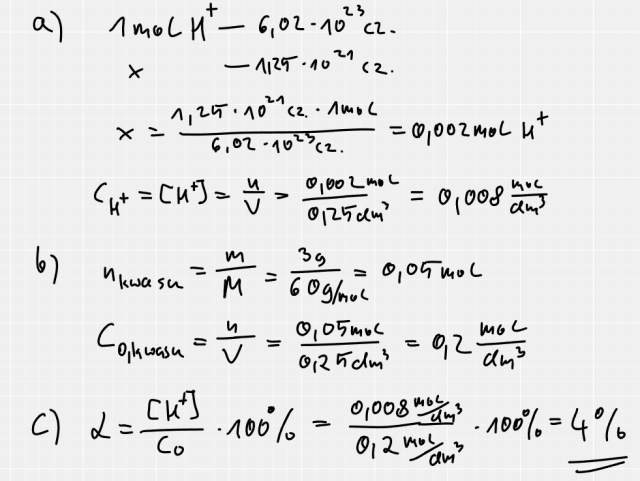 a) 1 mol H⁺ — 6,02 · 10²³ cz.
x — 1,25 · 10²¹ cz.
x = (1,25 · 10²¹ cz. · 1 mol) / (6,02 · 10²³ cz.) = 0,002 mol H⁺
C_H⁺ = [H⁺] = n/V = 0,002 mol / 0,25 dm³ = 0,008 mol/dm³
b) n kwasu = m/M = 3g / 60 g/mol = 0,05 mol
C₀,kwasu = n/V = 0,05 mol / 0,25 dm³ = 0,2 mol/dm³
c) α = [H⁺]/C₀ · 100% = 0,008 mol/dm³ / 0,2 mol/dm³ · 100% = 4%